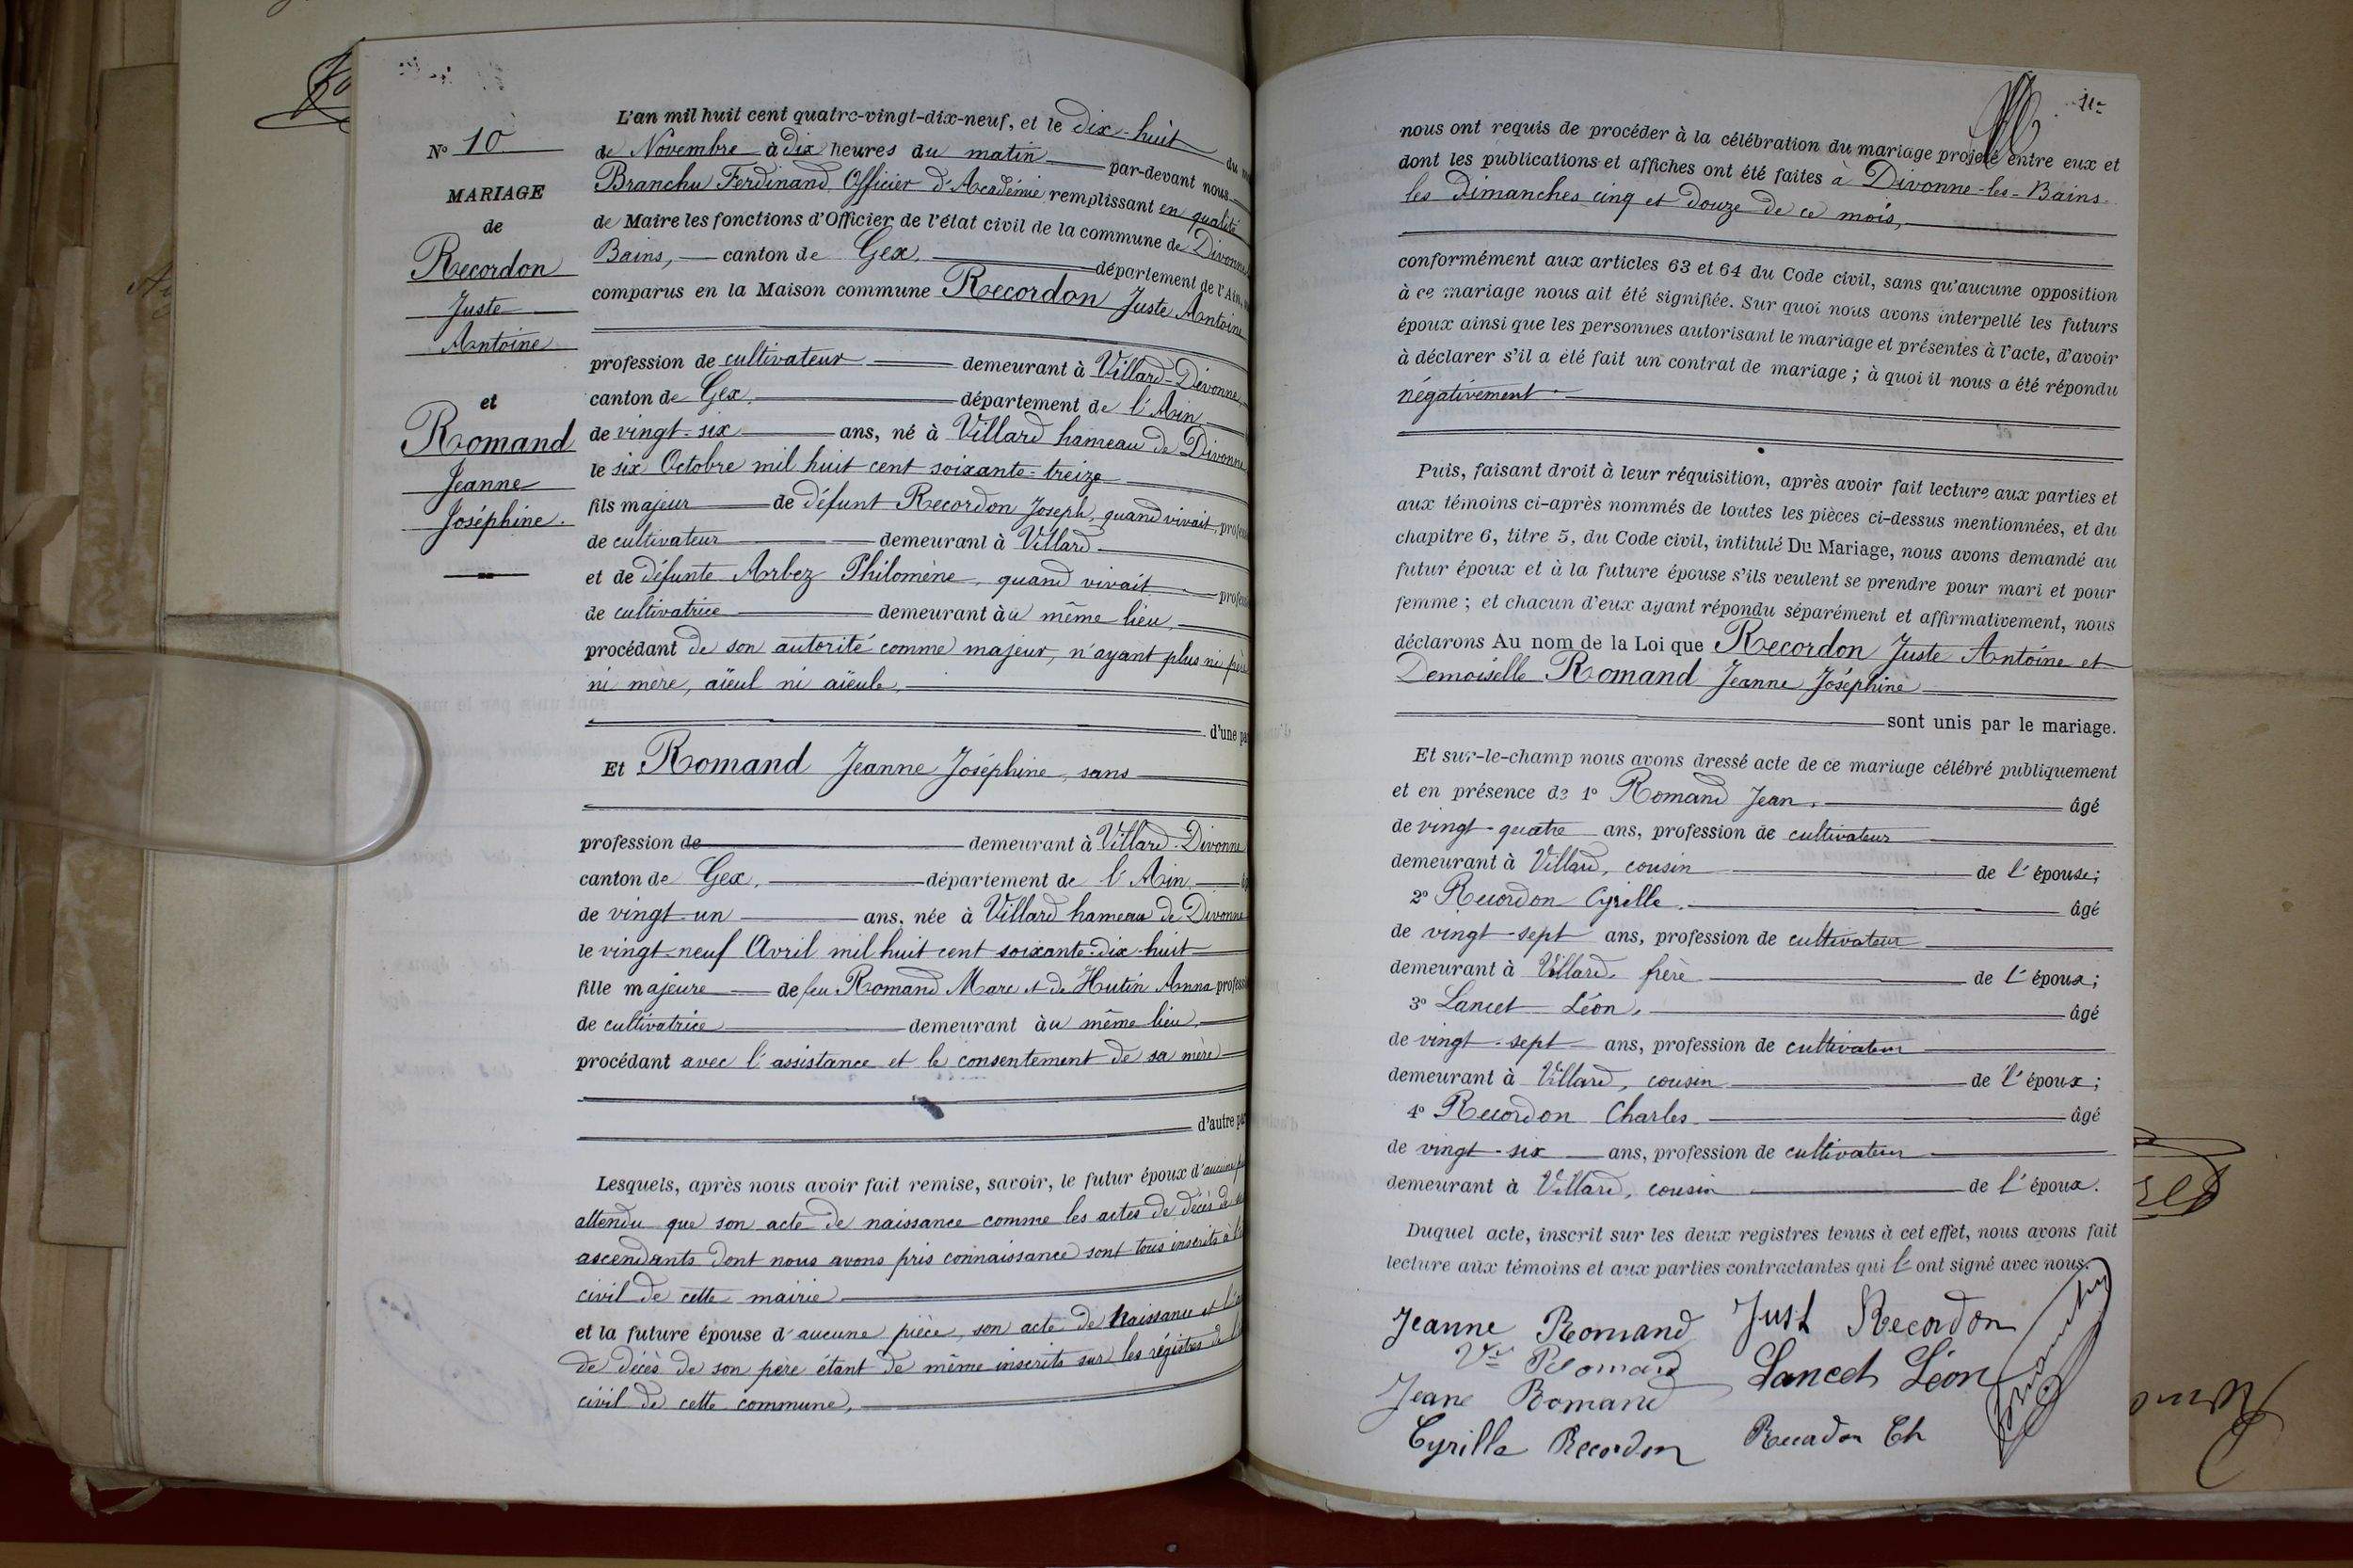 N° 10
MARIAGE
de
Recordon
Juste
Antoine
et
Romand
Jeanne
Joséphine.
L'an mil huit cent quatre-vingt-dix-neuf, et le dix-huit du
de Novembre à dix heures du matin par-devant nous
Branchu Ferdinand Officier d'Académie remplissant en qualité
de Maire les fonctions d'Officier de l'état civil de la commune de Divonne
Bains, canton de Gex. département de l'Ain,
comparus en la Maison commune Recordon Juste Antoine
profession de cultivateur demeurant à Villard-Divonne,
canton de Gex. département de l'Ain
de vingt-six ans, né à Villard hameau de Divonne
le six Octobre mil huit cent soixante-treize
fils majeur de défunt Recordon Joseph, quand vivait,
de cultivateur demeurant à Villard
et de défunte Arbez Philomène, quand vivait
de cultivatrice demeurant àu même lieu,
procédant de son autorité comme majeur, n'ayant plus ni père
ni mère, aïeul ni aïeule,
d'une
Et Romand Jeanne Joséphine, sans
profession de demeurant à Villard-Divonne
canton de Gex. département de l'Ain
de vingt-un ans, née à Villard hameau de Divonne
le vingt-neuf Avril mil huit cent soixante-dix-huit
fille majeure de feu Romand Marc et de Hutin Anna
de cultivatrice demeurant àu même lieu,
procédant avec l'assistance et le consentement de sa mère
d'autre
Lesquels, après nous avoir fait remise, savoir, le futur époux d'aucune
attendu que son acte de naissance comme les actes de décès de
ascendants dont nous avons pris connaissance sont tous inscrits à
civil de cette mairie
et la future épouse d'aucune pièce, son acte de naissance et
de décès de son père étant de même inscrits sur les régistres de
civil de cette commune,
11
nous ont requis de procéder à la célébration du mariage projeté entre eux et
dont les publications et affiches ont été faites à Divonne-les-Bains.
les dimanches cinq et douze de ce mois,
conformément aux articles 63 et 64 du Code civil, sans qu'aucune opposition
à ce mariage nous ait été signifiée. Sur quoi nous avons interpellé les futurs
époux ainsi que les personnes autorisant le mariage et présentes à l'acte, d'avoir
à déclarer s'il a été fait un contrat de mariage ; à quoi il nous a été répondu
négativement
Puis, faisant droit à leur réquisition, après avoir fait lecture aux parties et
aux témoins ci-après nommés de toutes les pièces ci-dessus mentionnées, et du
chapitre 6, titre 5, du Code civil, intitulé Du Mariage, nous avons demandé au
futur époux et à la future épouse s'ils veulent se prendre pour mari et pour
femme ; et chacun d'eux ayant répondu séparément et affirmativement, nous
déclarons Au nom de la Loi que Recordon Juste Antoine et
Demoiselle Romand Jeanne Joséphine
sont unis par le mariage.
Et sur-le-champ nous avons dressé acte de ce mariage célébré publiquement
et en présence de 1° Romand Jean. âgé
de vingt-quatre ans, profession de cultivateur
demeurant à Villard, cousin de l'épouse;
2° Recordon Cyrille. âgé
de vingt-sept ans, profession de cultivateur
demeurant à Villard, frère de l'époux;
3° Lancet Léon. âgé
de vingt-sept ans, profession de cultivateur
demeurant à Villard, cousin de l'époux;
4° Recordon Charles âgé
de vingt-six ans, profession de cultivateur
demeurant à Villard, cousin de l'époux.
Duquel acte, inscrit sur les deux registres tenus à cet effet, nous avons fait
lecture aux témoins et aux parties contractantes qui l'ont signé avec nous.
Jeanne Romand Just Recordon
Vve Romand Lancet Léon
Jean Romand
Cyrille Recordon Recordon Ch